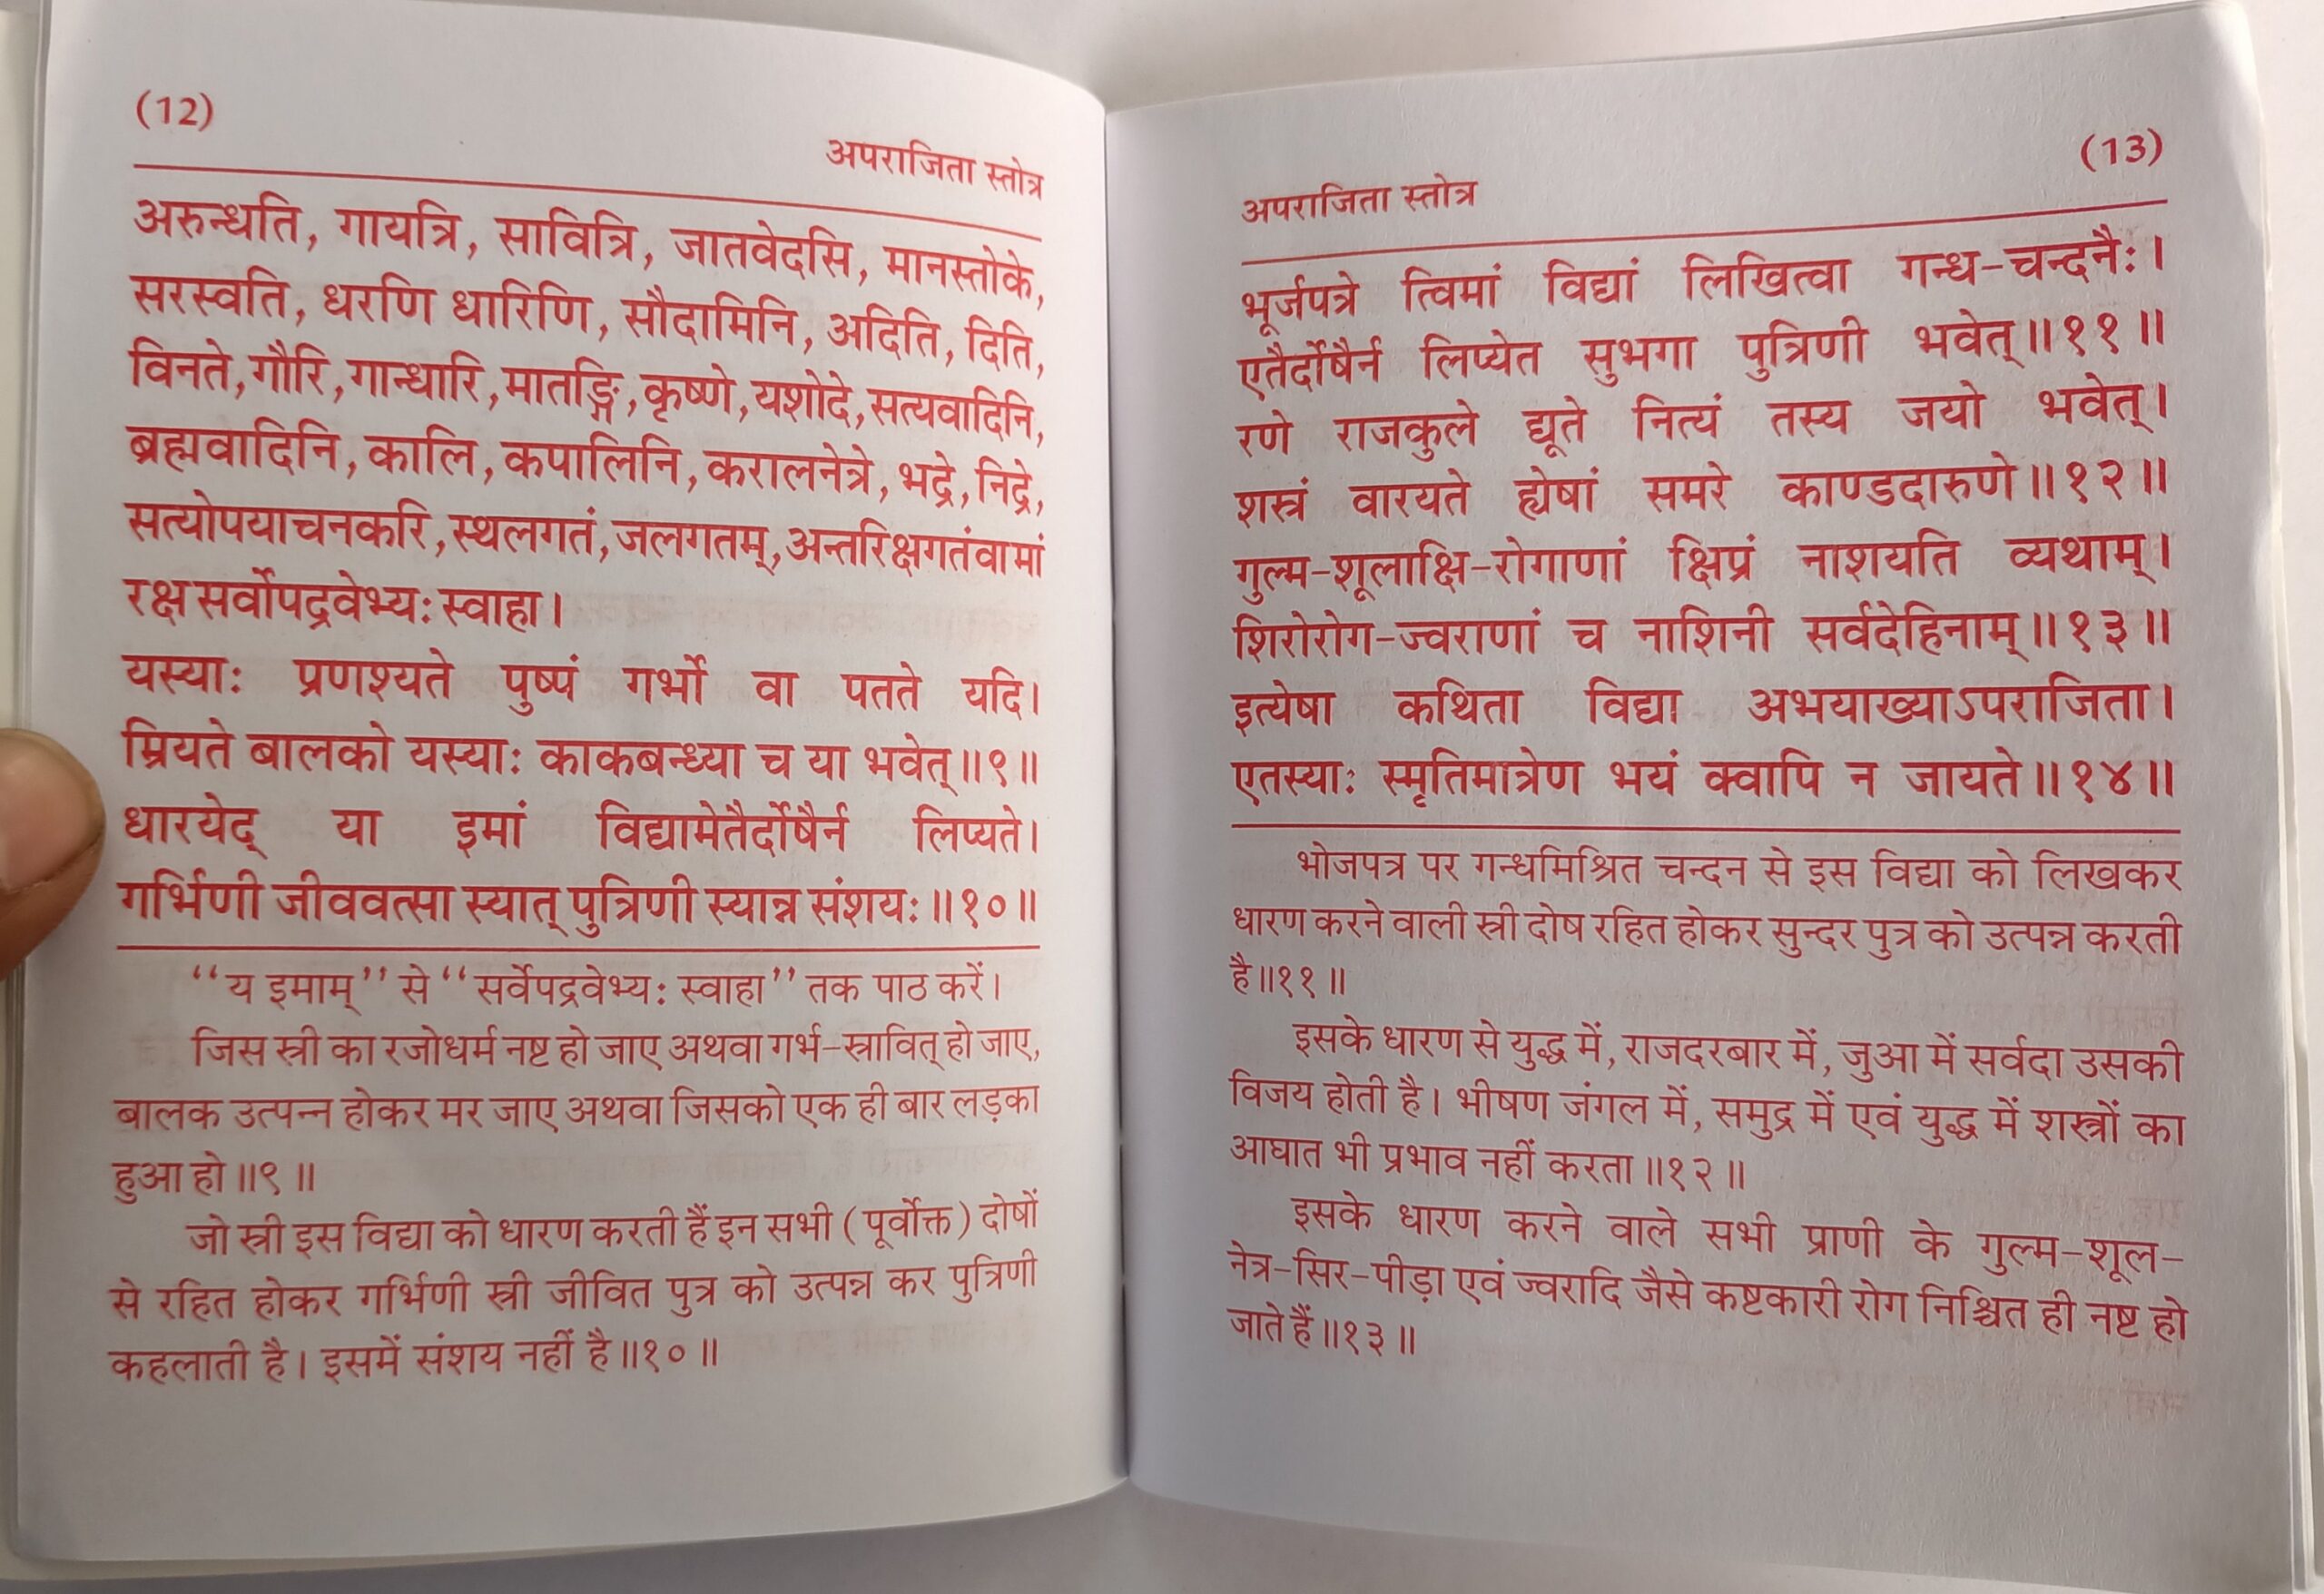 (12)
अपराजिता स्तोत्र
अरुन्धति, गायत्रि, सावित्रि, जातवेदसि, मानस्तोके,
सरस्वति, धरणि धारिणि, सौदामिनि, अदिति, दिति,
विनते, गौरि, गान्धारि, मातङ्गि, कृष्णे, यशोदे, सत्यवादिनि,
ब्रह्मवादिनि, कालि, कपालिनि, करालनेत्रे, भद्रे, निद्रे,
सत्योपयाचनकरि, स्थलगतं, जलगतम्, अन्तरिक्षगतं वा मां
रक्ष सर्वोपद्रवेभ्यः स्वाहा।
यस्याः प्रणश्यते पुष्पं गर्भो वा पतते यदि।
म्रियते बालको यस्याः काकबन्ध्या च या भवेत्॥९॥
धारयेद् या इमां विद्यामेतैर्दोषैर्न लिप्यते।
गर्भिणी जीववत्सा स्यात् पुत्रिणी स्यान्न संशयः॥१०॥
‘‘य इमाम्’’ से ‘‘सर्वेपद्रवेभ्यः स्वाहा’’ तक पाठ करें।
जिस स्त्री का रजोधर्म नष्ट हो जाए अथवा गर्भ-स्त्रावित् हो जाए,
बालक उत्पन्न होकर मर जाए अथवा जिसको एक ही बार लड़का
हुआ हो॥९॥
जो स्त्री इस विद्या को धारण करती हैं इन सभी (पूर्वोक्त) दोषों
से रहित होकर गर्भिणी स्त्री जीवित पुत्र को उत्पन्न कर पुत्रिणी
कहलाती है। इसमें संशय नहीं है॥१०॥
(13)
अपराजिता स्तोत्र
भूर्जपत्रे त्विमां विद्यां लिखित्वा गन्ध-चन्दनैः।
एतैर्दोषैर्न लिप्येत सुभगा पुत्रिणी भवेत्॥११॥
रणे राजकुले द्यूते नित्यं तस्य जयो भवेत्।
शस्त्रं वारयते ह्येषां समरे काण्डदारुणे॥१२॥
गुल्म-शूलाक्षि-रोगाणां क्षिप्रं नाशयति व्यथाम्।
शिरोरोग-ज्वराणां च नाशिनी सर्वदेहिनाम्॥१३॥
इत्येषा कथिता विद्या अभयाख्याऽपराजिता।
एतस्याः स्मृतिमात्रेण भयं क्वापि न जायते॥१४॥
भोजपत्र पर गन्धमिश्रित चन्दन से इस विद्या को लिखकर
धारण करने वाली स्त्री दोष रहित होकर सुन्दर पुत्र को उत्पन्न करती
है॥११॥
इसके धारण से युद्ध में, राजदरबार में, जुआ में सर्वदा उसकी
विजय होती है। भीषण जंगल में, समुद्र में एवं युद्ध में शस्त्रों का
आघात भी प्रभाव नहीं करता॥१२॥
इसके धारण करने वाले सभी प्राणी के गुल्म-शूल-
नेत्र-सिर-पीड़ा एवं ज्वरादि जैसे कष्टकारी रोग निश्चित ही नष्ट हो
जाते हैं॥१३॥